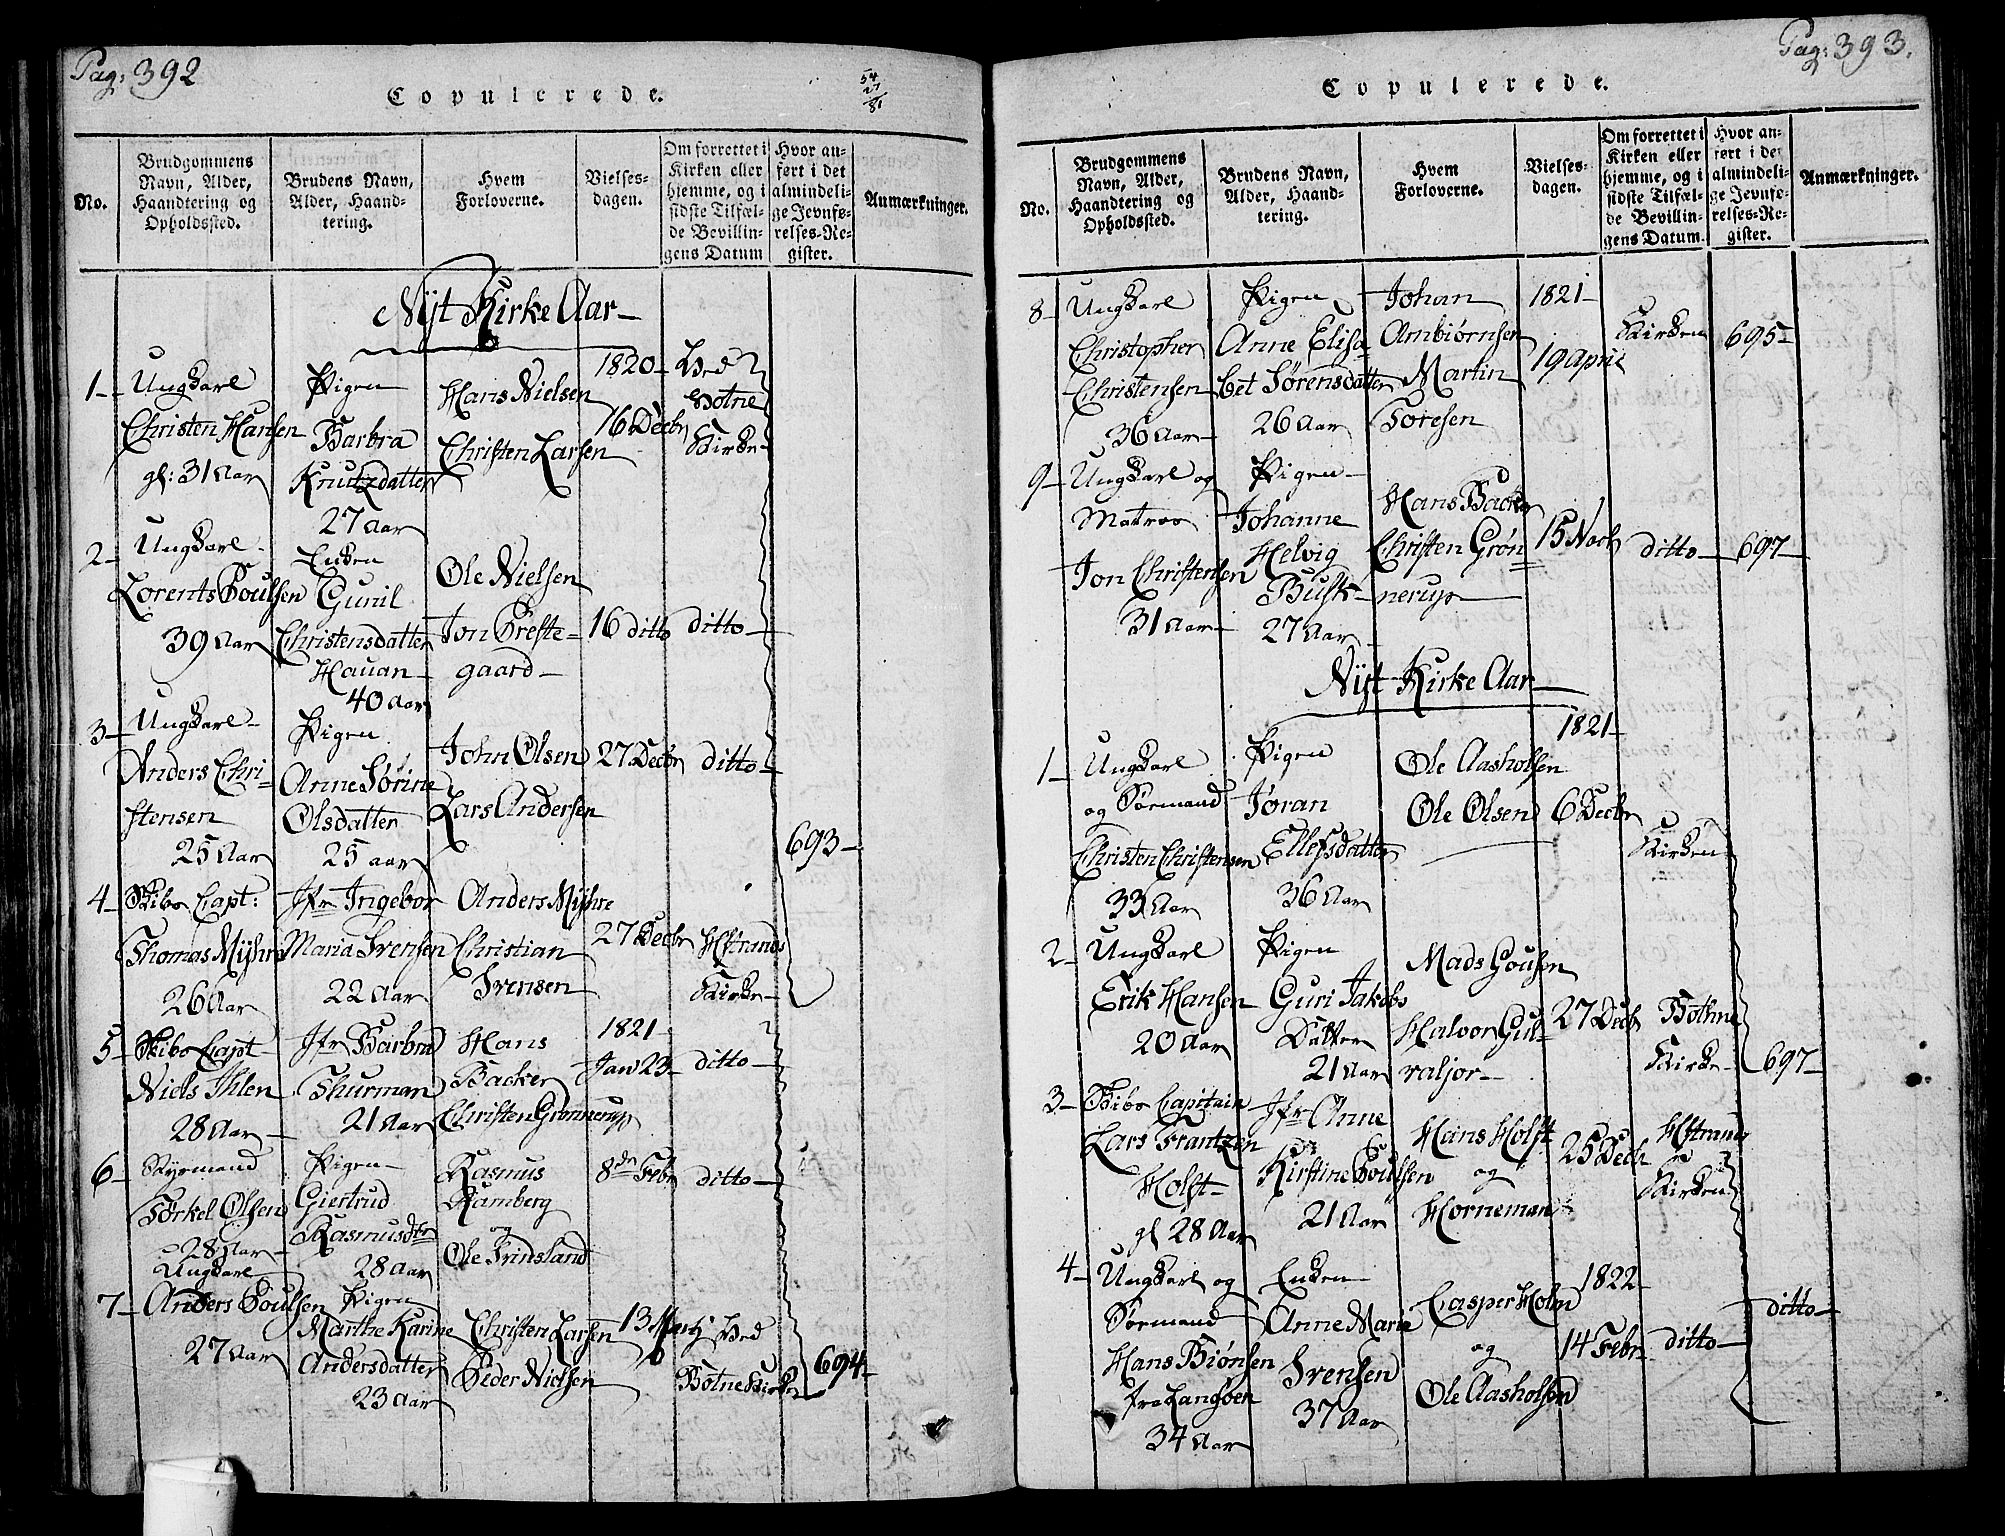 Pag: 392
Copulerede.
54
27
81
No.
Brudgommens
Navn, Alder,
Haandtering og
Opholdssted.
Brudens Navn,
Alder, Haand-
tering.
Hvem
Forloverne.
Vielses-
dagen.
Om forrettet i
Kirken eller
hjemme, og i
sidste Tilfæl-
de Bevillin-
gens Datum
Hvor an-
ført i det
almindeli-
ge Jevnfø-
relses-Re-
gister.
Anmærkninger.
Nyt Kirke Aar
1-
Ungkarl
Christen Hansen
gl: 31 Aar
Pigen
Barbra
Knutzdatter
27 Aar
Hans Nielsen
Christen Larsen
1820-
16 Decbr
Ved
Botne
Kirke-
2-
Ungkarl
Lorents Poulsen
39 Aar
Enken
Gunil
Christensdatter
Hauan
40 Aar
Ole Nielsen
Jon Preste-
gaard-
16 ditto
ditto-
3-
Ungkarl-
Anders Chri-
stensen
25 Aar
Pigen
Anne Sørine
Olsdatter
25 aar
John Olsen
Lars Andersen
27 Decbr
ditto-
693-
4-
Skibs Capt:
Thomas Myhre
26 Aar
Jfr Ingebor
Maria Svensen
22 Aar
Anders Myhre
Christian
Svensen
27 Decbr
Hstrands
Kirke-
5-
Skibs Capt
Niels Ihlen
28 Aar-
Jfr Barbra
Thurman
21 Aar
Hans
Backer
Christen Grønnerup
1821-
Jan 23-
ditto-
6-
Styrmand
Torkel Olsen
28 Aar-
Pigen-
Giertrud
Rasmusdtr
28 Aar
Rasmus
Ramberg
og
Ole Frinsland
8de Febr
ditto-
7-
Ungkarl
Anders Poulsen
27 Aar
Pigen
Marthe Karine
Andersdatter
23 Aar
Christen Larsen
Peder Nielsen
13 Martj
Ved
Botne Kirke
694-
Pag: 393.
Copulerede.
No.
Brudgommens
Navn, Alder,
Haandtering og
Opholdssted.
Brudens Navn,
Alder, Haand-
tering.
Hvem
Forloverne.
Vielses-
dagen.
Om forrettet i
Kirken eller
hjemme, og i
sidste Tilfæl-
de Bevillin-
gens Datum.
Hvor an-
ført i det
almindeli-
ge Jevnfø-
relses-Re-
gister.
Anmærkninger.
8-
Ungkarl
Christopher
Christensen
36 Aar-
Pigen
Anne Elisa
bet Sørensdatter
26 Aar
Johan
Ambiørnsen
Martin
Toresen
1821-
19 April
Kirken
695-
9-
Ungkarl og
Matros
Jon Christensen
31 Aar-
Pigen-
Johanne
Helvig
Busk-
27 Aar
Hans Backer
Christen Grøn
nerup
15 Novb
ditto-
697-
Nyt Kirke Aar
1-
Ungkarl
og Sørmand
Christen Christensen
33 Aar
Pigen
Jøran
Ellefsdatter
36 Aar
Ole Aasholsen
Ole Olsen
1821-
6 Decbr
Kirken
2-
Ungkarl
Erik Hansen
20 Aar
Pigen
Guri Jakobs
Datter
21 Aar
Mads
Halvor
27 Decb
Bothne
Kirke-
697-
3-
Skibs Capitain
Lars Frantzen
Holst-
gl 28 Aar
Jfr Anne
Kirstine Poulsen
21 Aar
Hans Holst
og
Horneman
25 Decb
Hstrands
Kirken
4-
Ungkarl og
Sørmand
Hans Biønsen
fra Langøen
34 Aar
Enken
Anne Marie
Svensen
37 Aar
Casper Holm
og
Ole Aasholsen
1822-
14 Febr
ditto-
ditto-